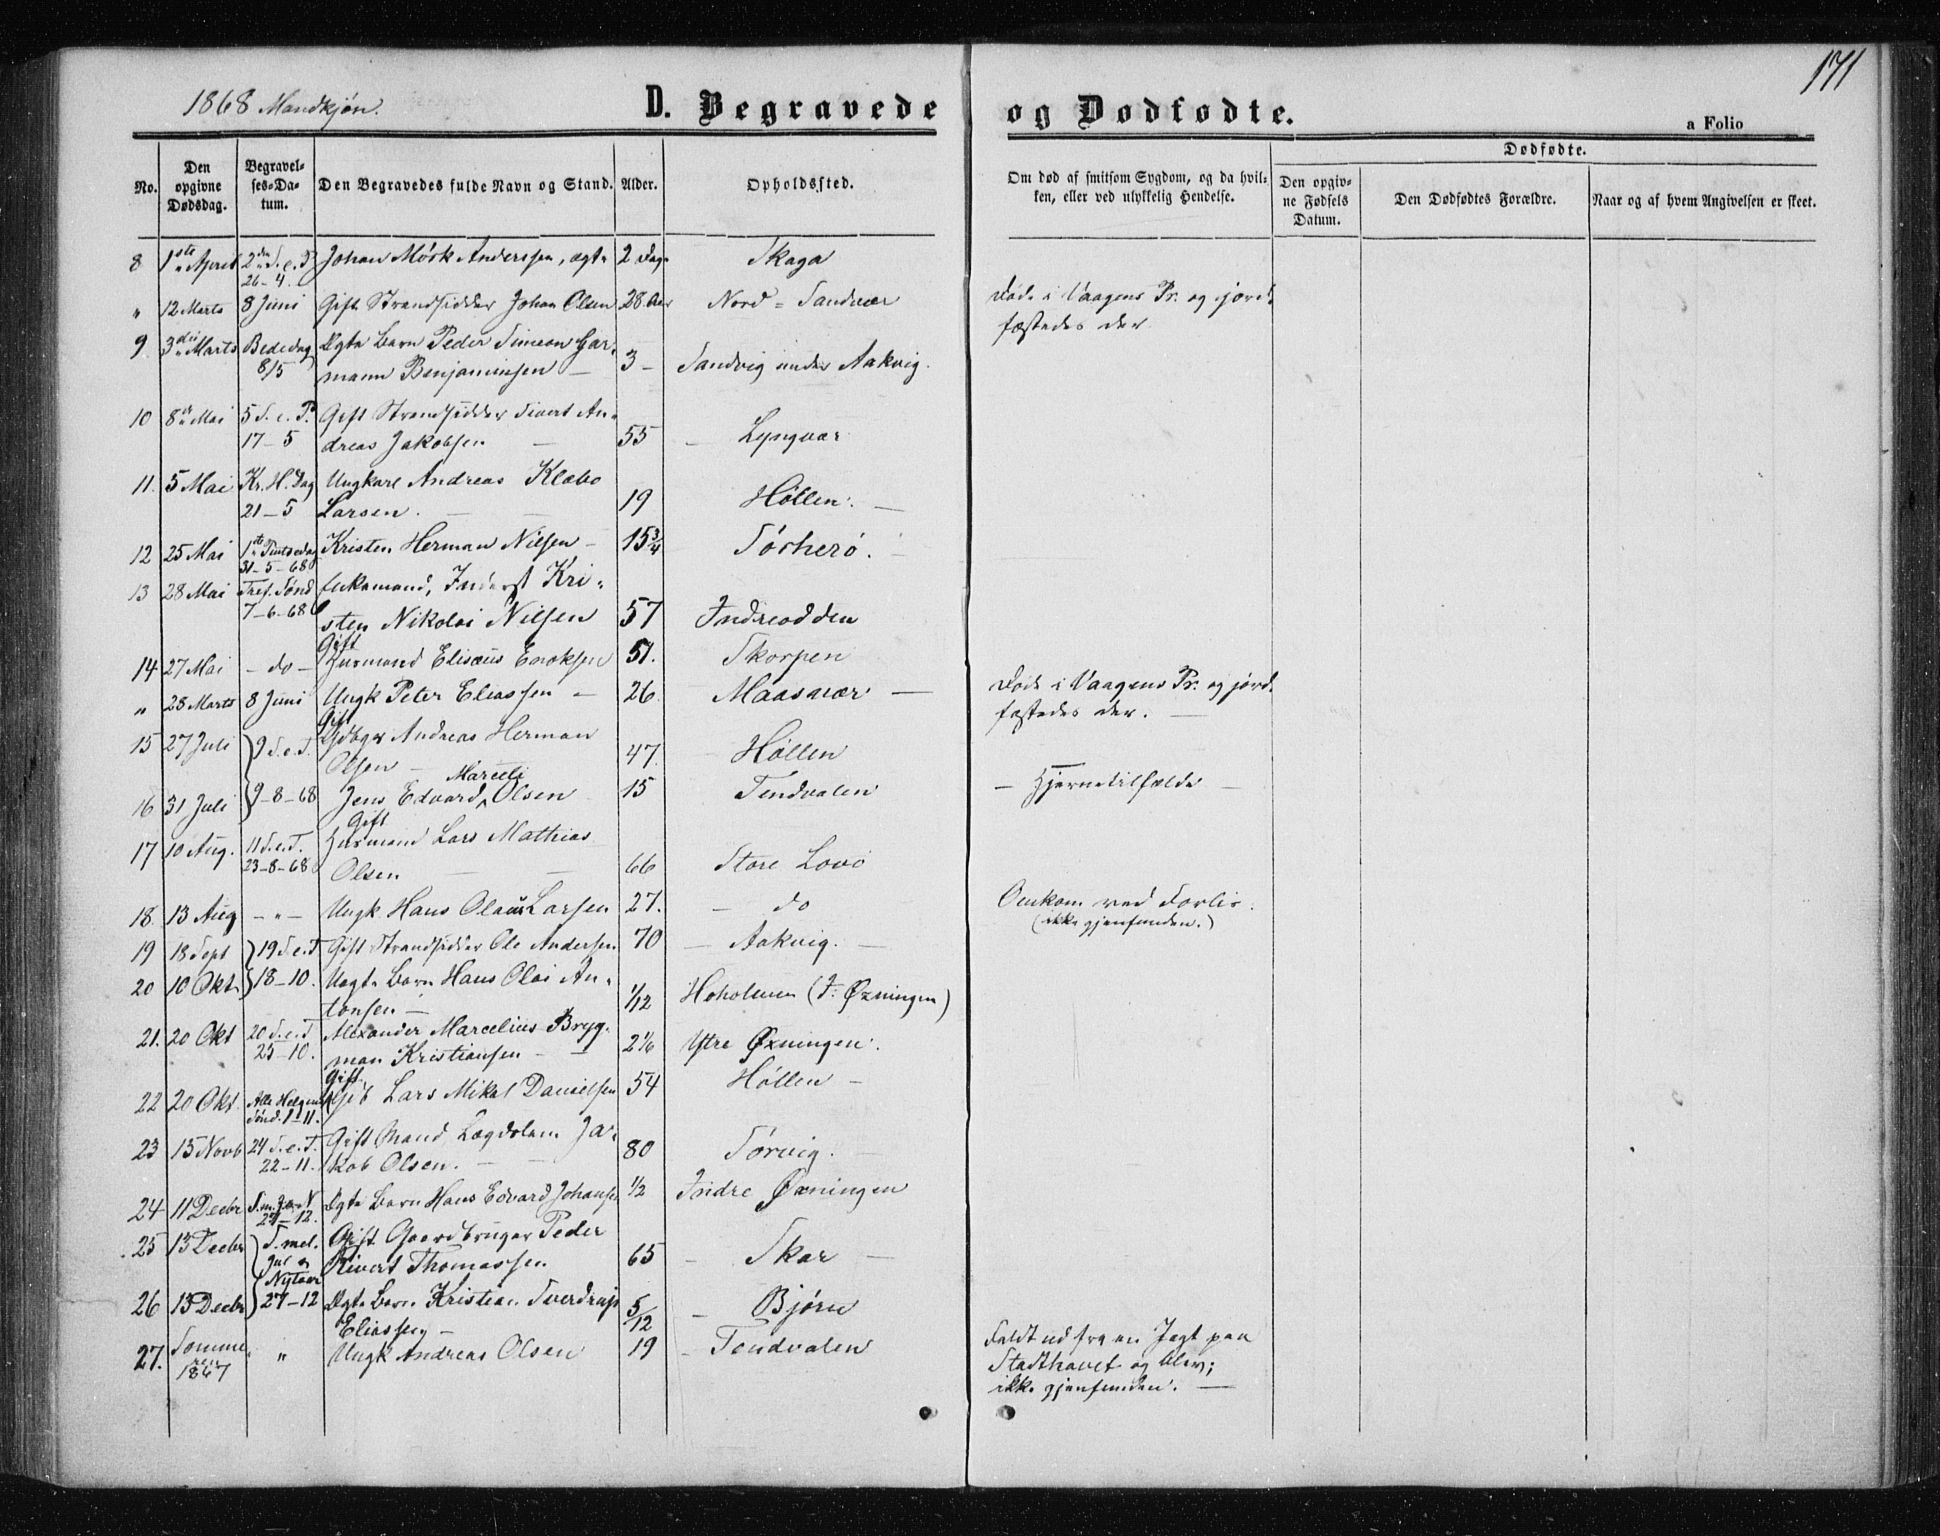 171
1868 Mandkjøn.
D. Begravede og Dødfødte.
a Folio
Dødfødte.
No.
Den opgivne Dødsdag.
Begravel-ses-Da-tum.
Den Begravedes fulde Navn og Stand.
Alder.
Opholdssted.
Om død af smitsom Sygdom, og da hvil-ken, eller ved ulykkelig Hendelse.
Den opgiv-ne Fødsels Datum.
Den Dødfødtes Forældre.
Naar og af hvem Angivelsen er skeet.
8 1ste April 2den S. e. P. Johan Mørk Anderssen, ægte 2 Dage Skaga
26-4.
" 12 Marts 8 Juni Gift Strandsidder Johan Olsen 28 Aar Nord-Sandvær Døde i Vaagens Pr. og jord-
fæstedes der
9 3die Marts Bededag Ægte Barn Peder Simeon Har-
8/5 mann Benjaminsen - 3 - Sandvig under Aakvig.
10 8de Mai 5 S. e. P. Gift Strandsidder Sivert An-
17-5 dreas Jakobsen - 55 - Lyngvær
11. 5 Mai Kr. H. Dag Ungkarl Andreas Klæbo
21-5 Larsen. - 19 Høllen. -
12 25 Mai 1ste Pintsedag Kristen Herman Nilsen - 15 3/4 Sørherø.
31-5-68
13 28 Mai Tref. Sønd Enkemand, Inderst Kri-
7-6-68 sten Nikolai Nilsen 57 Indreodden
14 27 Mai - do - Gift Husmand Elisæus Enoksen 51. Skorpen
" 28 Marts 8 Juni Ungk Peter Eliassen - 26 Maasvær - Døde i Vaagens Pr. og jord-
fæstedes der. -
15 27 Juli 9 S. e. T. Gift Gdbgr Andreas Herman
Olsen - 47. Høllen
16 31 Juli 9-8-68 Jens Edvard Marceli Olsen 15 Tendvalen - Hjernetilfælde -
17 10 Aug. 11 S. e. T. Gift Husmand Lars Mathias
23-8-68 Olsen - 66 Store Lovø
18. 13 Aug - " - Ungk Hans Olaus Larsen 27. - do Omkom ved Forlis.
(ikke gjenfunden.)
19 18 Sept 19 S. e. T Gift Strandsidder Ole Andersen 70 - Aakvig. -
20 10 Okt. 18-10. Uægte Barn Hans Olai An-
tonsen - 1/12 Hoholmen (I: Øxningen)
21. 20 Okt 20 S. e. T Alexander Marcelius Bryg-
25-10. man Kristiansen - 2 1/6 Ytre Øxningen.
22 20 Okt. Alle Helgens Gift Lars Mikal Danielsen 54 Høllen -
Sønd. 1-11.
23 15 Novb 24 S. e. T. Gift Mand Lægdslem Ja-
22-11. kob Olsen. - 80 Sørvig. -
24 11 Decbr S. m. J. o. N Ægte Barn Hans Edvard Johansen 1/2 Indre Øxningen
27-12.
25 13 Decbr S. mel. Jul o Nytaar Gift Gaardbruger Peder
Sivert Thomassen 65 - Skar -
26 13 Decbr 27-12 Ægte Barn Kristian Sverdrup
Eliassen - 5/12 - Bjørn
27. Sommeren 1867 " Ungk Andreas Olsen 19 - Tendvalen Faldt ud fra en Jagt paa
Stadthavet og blev;
ikke gjenfunden. -